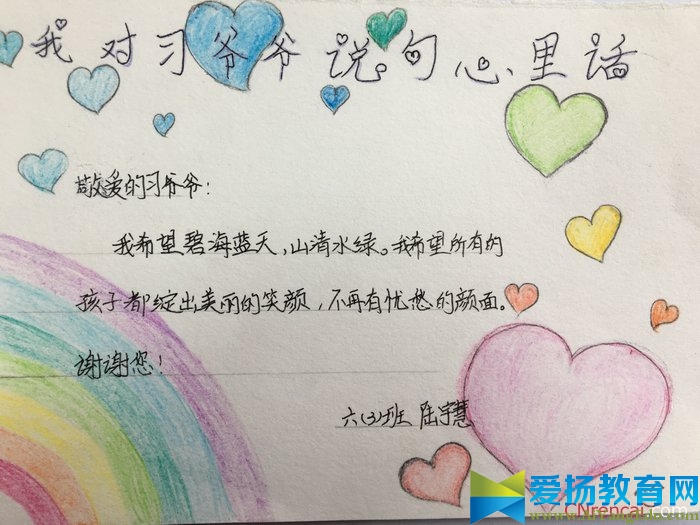 我对习爷爷说句心里话
敬爱的习爷爷:
我希望碧海蓝天,山清水绿。我希望所有的
孩子都绽出美丽的笑颜,不再有忧愁的颜面。
谢谢您!
六(3)班 陆宇慧
爱扬教育网
CNrencai.com